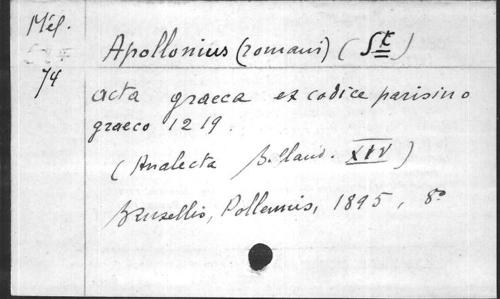 Mél.
74
Apollonius (romani) (St)
acta graeca ex codice parisino
graeco 1219.
(Analecta Bolland. XIV)
Bruxellis, Polleunis, 1895, 8°